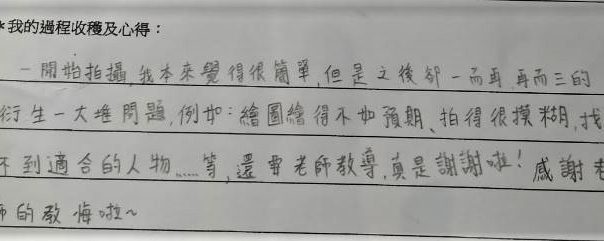 *我的過程收穫及心得：
一開始拍攝,我本來覺得很簡單,但是之後卻一而再,再而三的
衍生一大堆問題,例如:繪圖繪得不如預期、拍得很摸糊,找
不到適合的人物……等,還要老師教導,真是謝謝啦!感謝老
師的教悔啦~